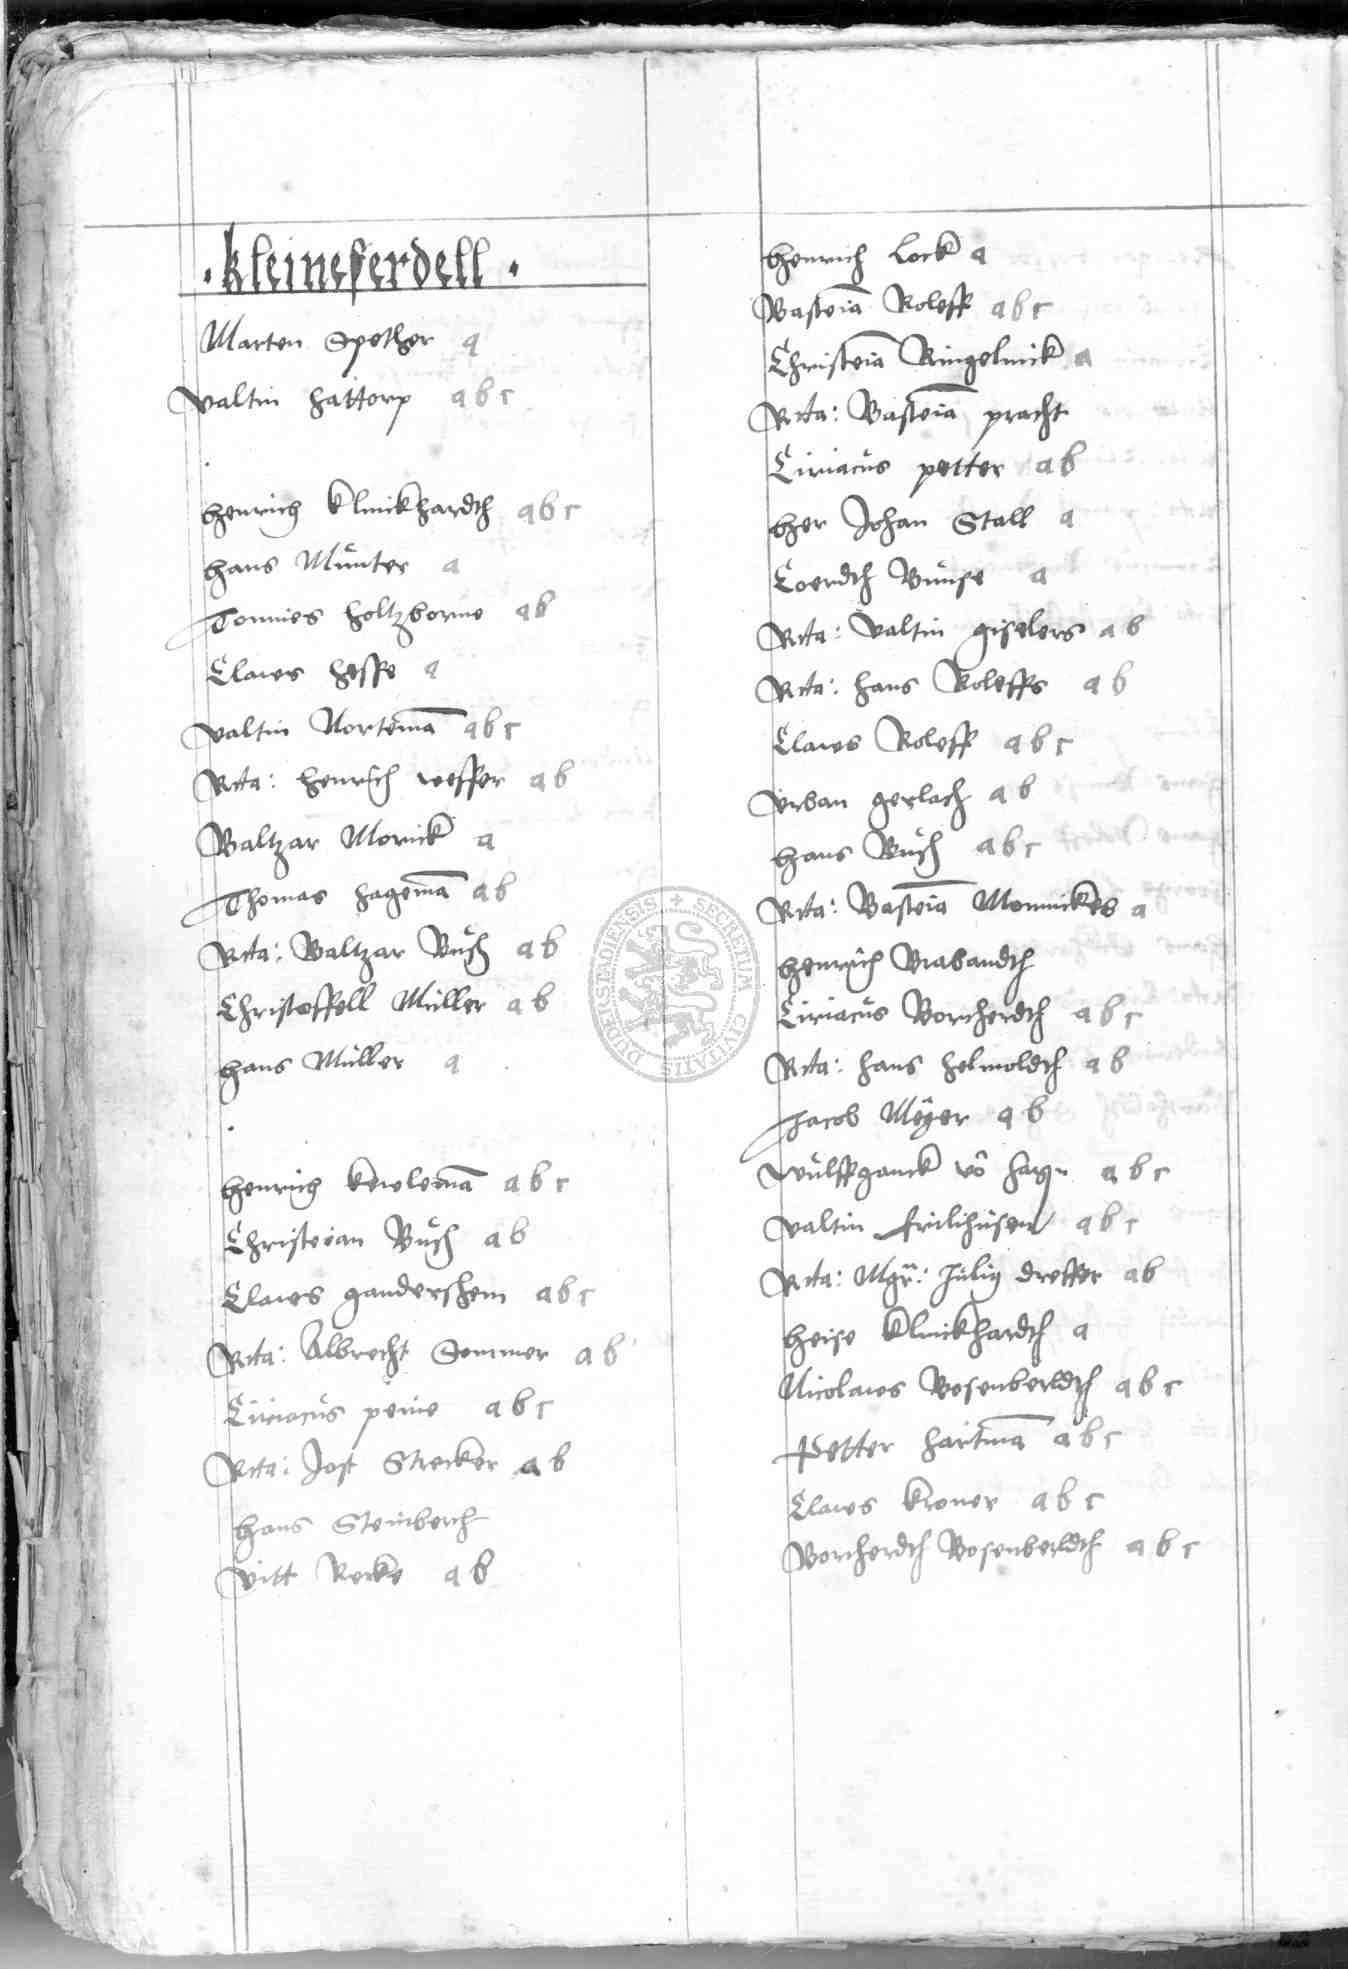 · kleineferdell ·
Marten Spether a
Valtin hattorp a b c
henrich klinckhardth a b c
hans Munter a
Tonnies holtzborne a b
Clawes hesse a
Valtin Nortemā a b c
Rcta: henrich wesser a b
Baltzar Monick a
Thomas hagemā a b
Rcta: Baltzar Busch a b
Christoffell Muller a b
hans Muller a
henrich kewlemā a b c
Christoian Busch a b
Clawes gandershem a b c
Rcta: Albrecht Sommer a b
Ciriacus peine a b c
Rcta: Jost Strecker a b
hans Steinberch
Vitt Recke a b
henrich Lock a
Bastoiā Roleff a b c
Christoiā Ringelmick a
Rcta: Bastoiā pracht
Ciriacus petter a b
her Johan Stall a
Coerdth Bunse a
Rcta: Valtin giselers a b
Rcta: hans Roleffs a b
Clawes Roleff a b c
Urban gerlach a b
hans Busch a b c
Rcta: Bastoiā Monnickes a
henrich Brabandth
Ciriacus Borcherdth a b c
Rcta: hans helmoldth a b
Jacob Meyer a b
Wulffganck vō hagn a b c
Valtin frilihusen a b c
Rcta: Mgr: Julig dresser a b
heise klinckhardth a
Nicolawes Bosenberldth a b c
Petter hartmā a b c
Clawes kroner a b c
Borcherdth Bosenberldth a b c
DUDERSTADIENSIS SECRETUM CIVITATIS